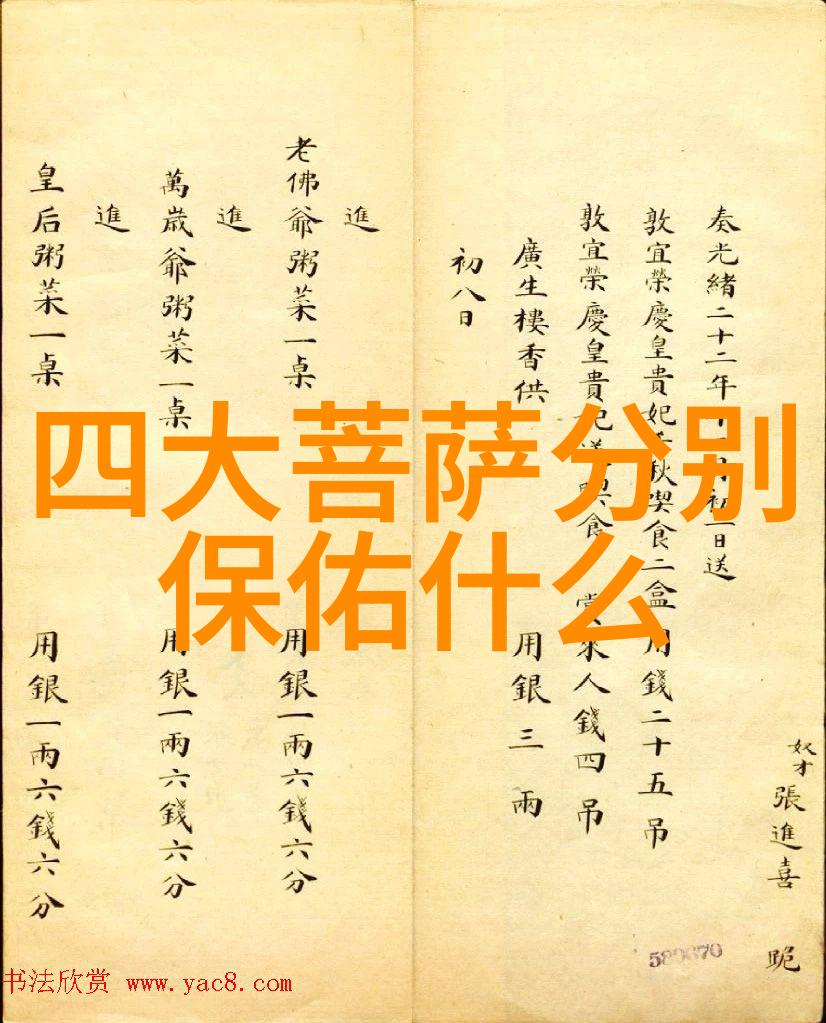 四大菩萨分别
保佑什么
奴才張進喜 跪
奏光緒二十二年十一月初一日送
敦宜榮慶皇貴妃千秋喫食二盒用錢二十五吊
敦宜榮慶皇貴妃送喫食 賞來人錢四吊
廣生樓香供 用銀三兩
初八日
進
老佛爺粥菜一桌 用銀一兩六錢六分
進
萬歲爺粥菜一桌 用銀一兩六錢六分
進
皇后粥菜一桌 用銀一兩六錢六分
书法欣赏 www.yac8.com